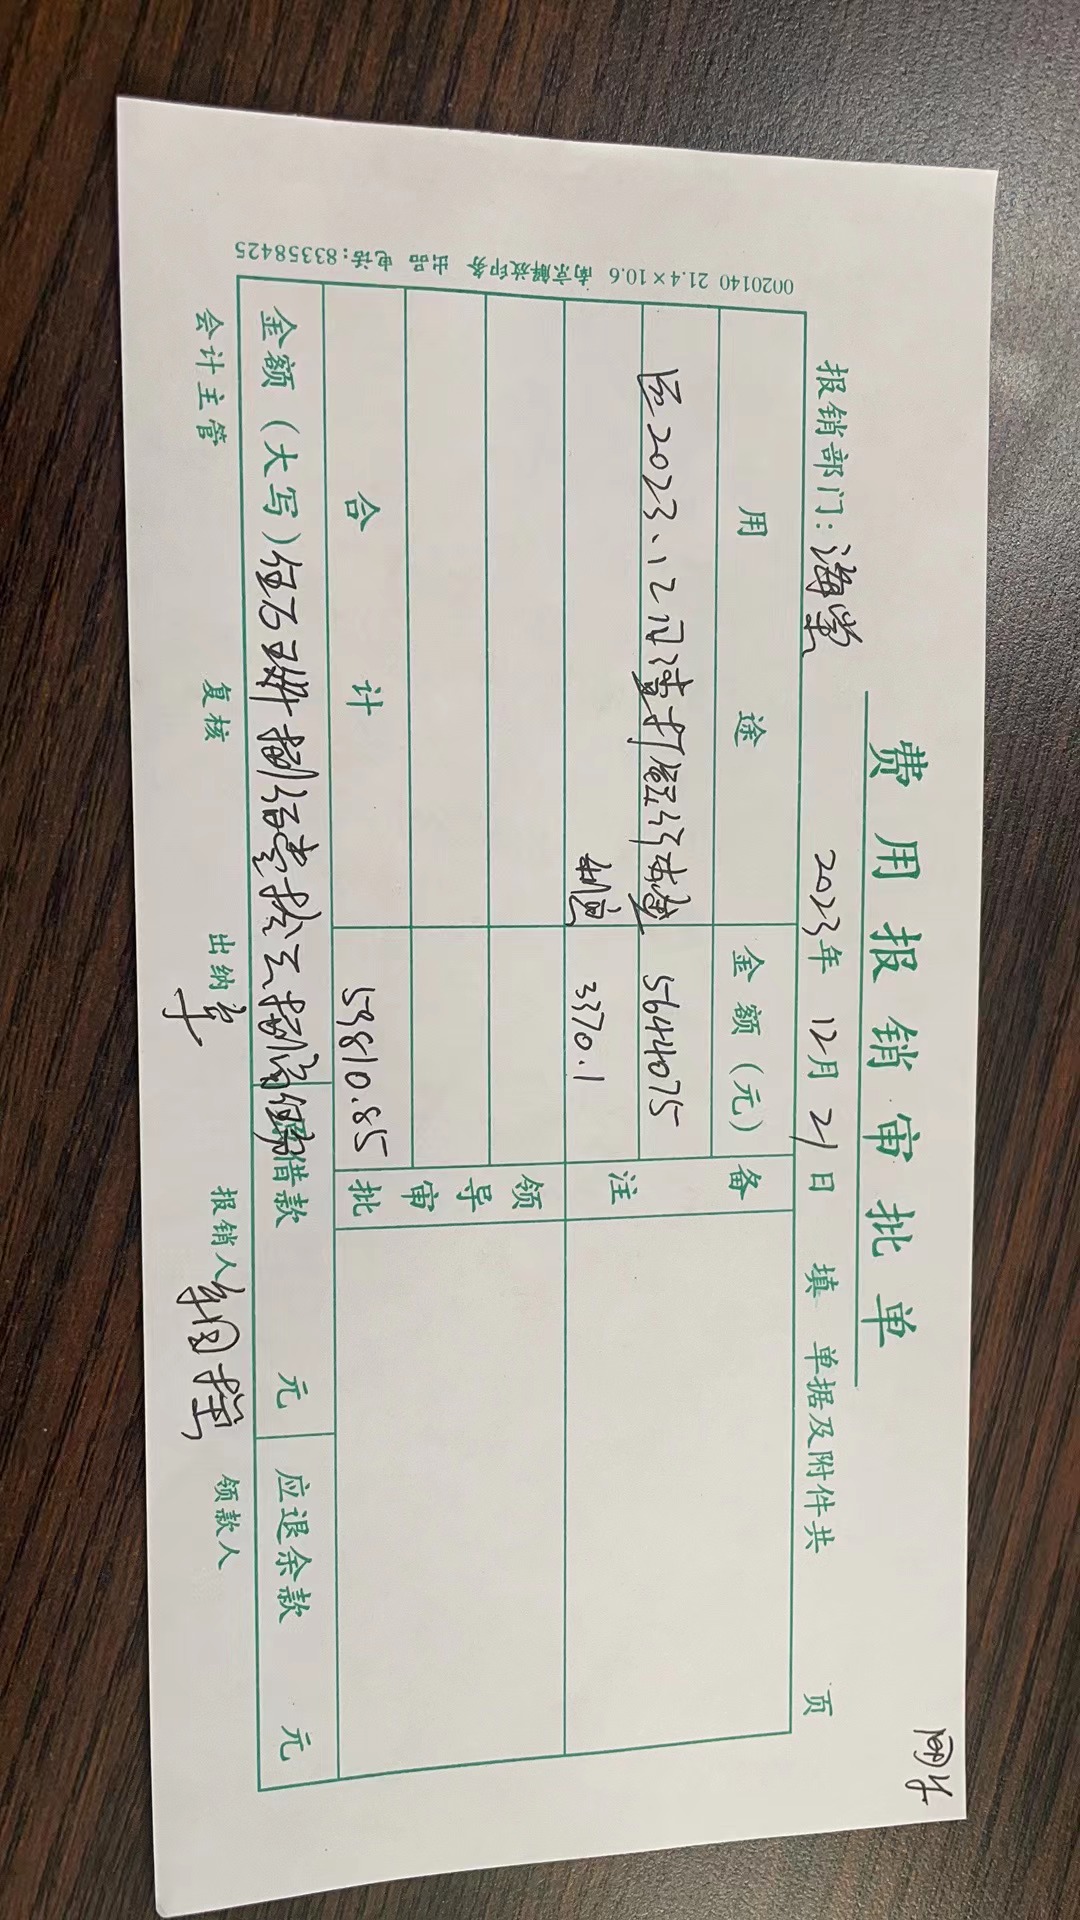 网
费用报销审批单
报销部门: 海棠 2023年 12月 21日 填 单据及附件共 页
用 途 金 额 (元) 备
2023.12月 5644075 注
利息 3370.1
领导审批
合 计 59810.85
金额(大写)伍万玖仟捌佰壹拾元捌角伍分 借款 元 应退余款 元
会计主管 复核 出纳 报销人 领款人
0020140 21.4×10.6 南京解放印务 出品 电话:83358425